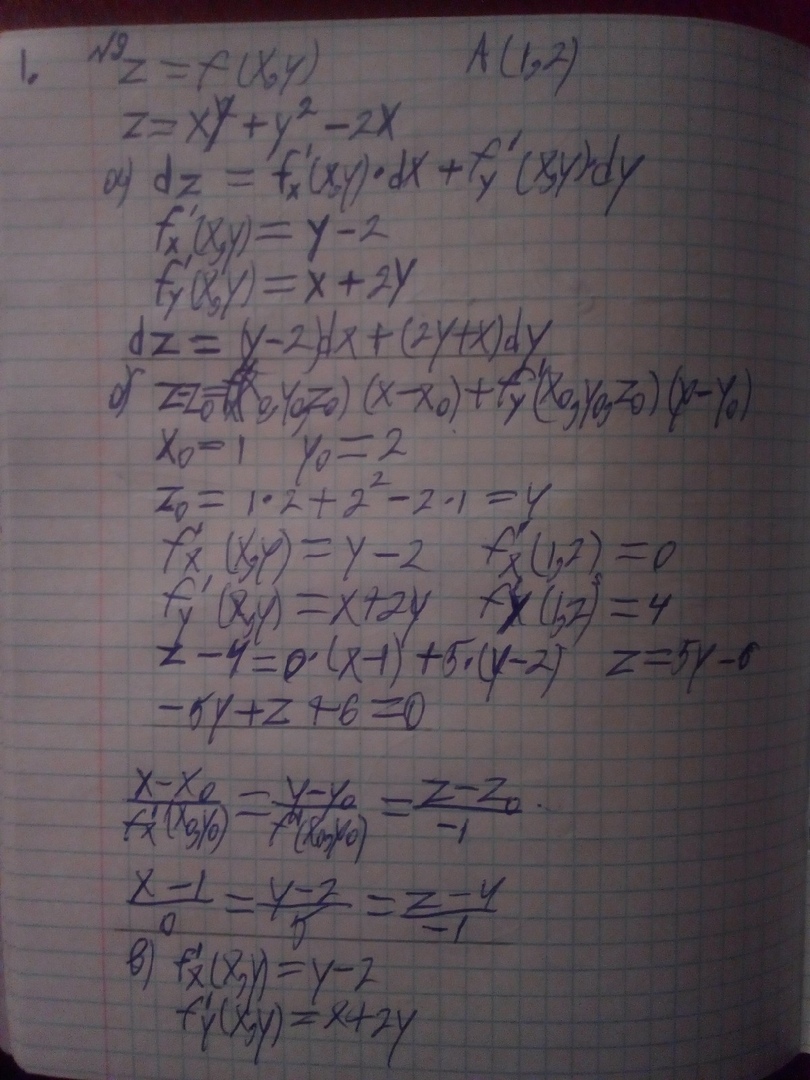 1. №9 z = f(x,y) A(1,2)
z = xy + y² - 2x
а) dz = f'x(x,y)·dx + f'y(x,y)·dy
f'x(x,y) = y - 2
f'y(x,y) = x + 2y
dz = (y-2)dx + (2y+x)dy
б) z-z₀ = f'x(x₀,y₀,z₀)(x-x₀) + f'y(x₀,y₀,z₀)(y-y₀)
x₀ = 1 y₀ = 2
z₀ = 1·2 + 2² - 2·1 = 4
f'x(x,y) = y - 2 f'x(1,2) = 0
f'y(x,y) = x + 2y f'y(1,2) = 4
z - 4 = 0·(x-1) + 5·(y-2) z = 5y - 6
-5y + z + 6 = 0
(x-x₀)/f'x(x₀,y₀) = (y-y₀)/f'(x₀,y₀) = (z-z₀)/-1.
(x-1)/0 = (y-2)/5 = (z-4)/-1
в) f'x(x,y) = y - 2
f'y(x,y) = x + 2y